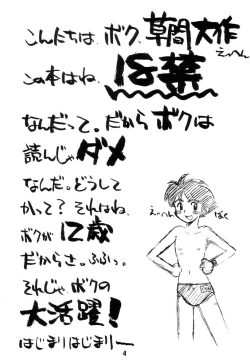 こんにちは、ボク、草間大作
えっへん
この本はね、18禁
なんだって。だからボクは
読んじゃダメ
なんだ。どうして
かって？それはね、
ボクが12歳
だからさ。ふふっ。
それじゃ、ボクの
大活躍！
はじまりはじまりー
えっへん
ぼく
4